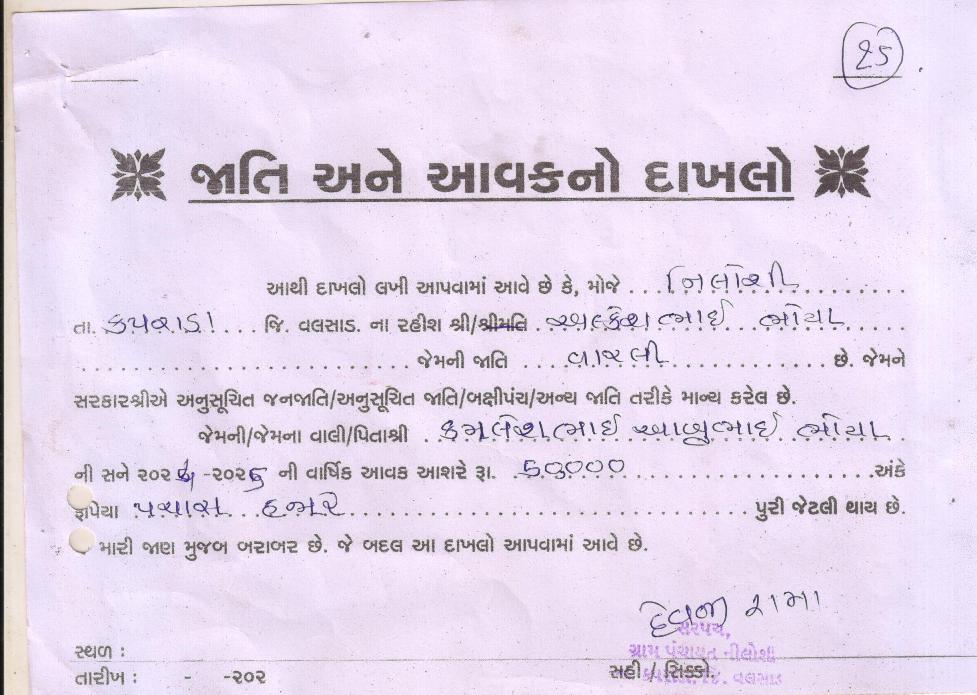 ૨૬
જાતિ અને આવકનો દાખલો
આથી દાખલો લખી આપવામાં આવે છે કે, મોજે ... નિલોશી ..........
તા. કપરાડા ... જિ. વલસાડ. ના રહીશ શ્રી/શ્રીમતિ . અલ્કેશભાઈ ભોયા
.............................. જેમની જાતિ .... વારલી .............. છે. જેમને
સરકારશ્રીએ અનુસૂચિત જનજાતિ/અનુસૂચિત જાતિ/બક્ષીપંચ/અન્ય જાતિ તરીકે માન્ય કરેલ છે.
જેમની/જેમના વાલી/પિતાશ્રી . કમલેશભાઈ આબુભાઈ ભોયા
ની સને ૨૦૨૫-૨૦૨૬ ની વાર્ષિક આવક આશરે રૂા. ૫૦૦૦૦ ................ અંકે
રૂપિયા પચાસ હજાર ................................ પુરી જેટલી થાય છે.
મારી જાણ મુજબ બરાબર છે. જે બદલ આ દાખલો આપવામાં આવે છે.
દેવજી રામા
સરપંચ,
સ્થળ :
ગ્રામ પંચાયત નીલોશી
તારીખ : - -૨૦૨
સહી / સિક્કો.
કપરાડા. જિ. વલસાડ